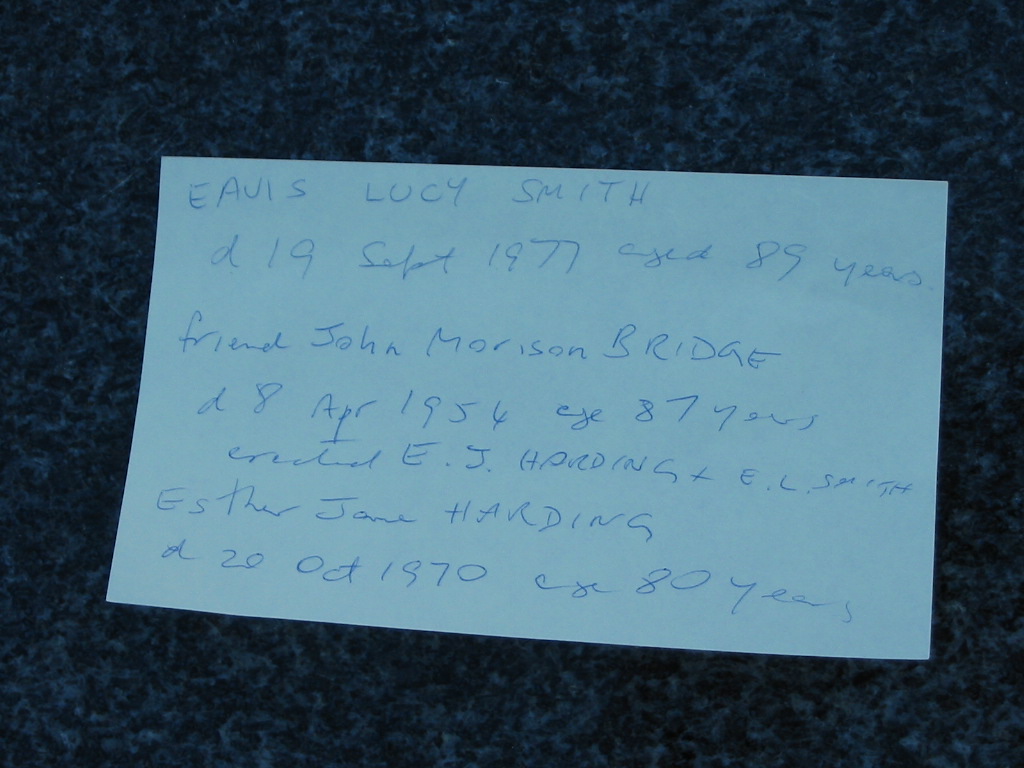 EAVIS LUCY SMITH
d 19 Sept 1977 aged 89 years.
friend John Morison BRIDGE
d 8 Apr 1954 age 87 years
erected E. J. HARDING + E. L. SMITH
Esther Jane HARDING
d 20 Oct 1970 age 80 years